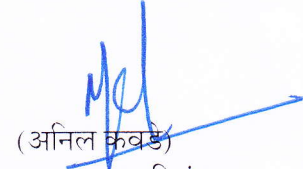 (अनिल कवडे)